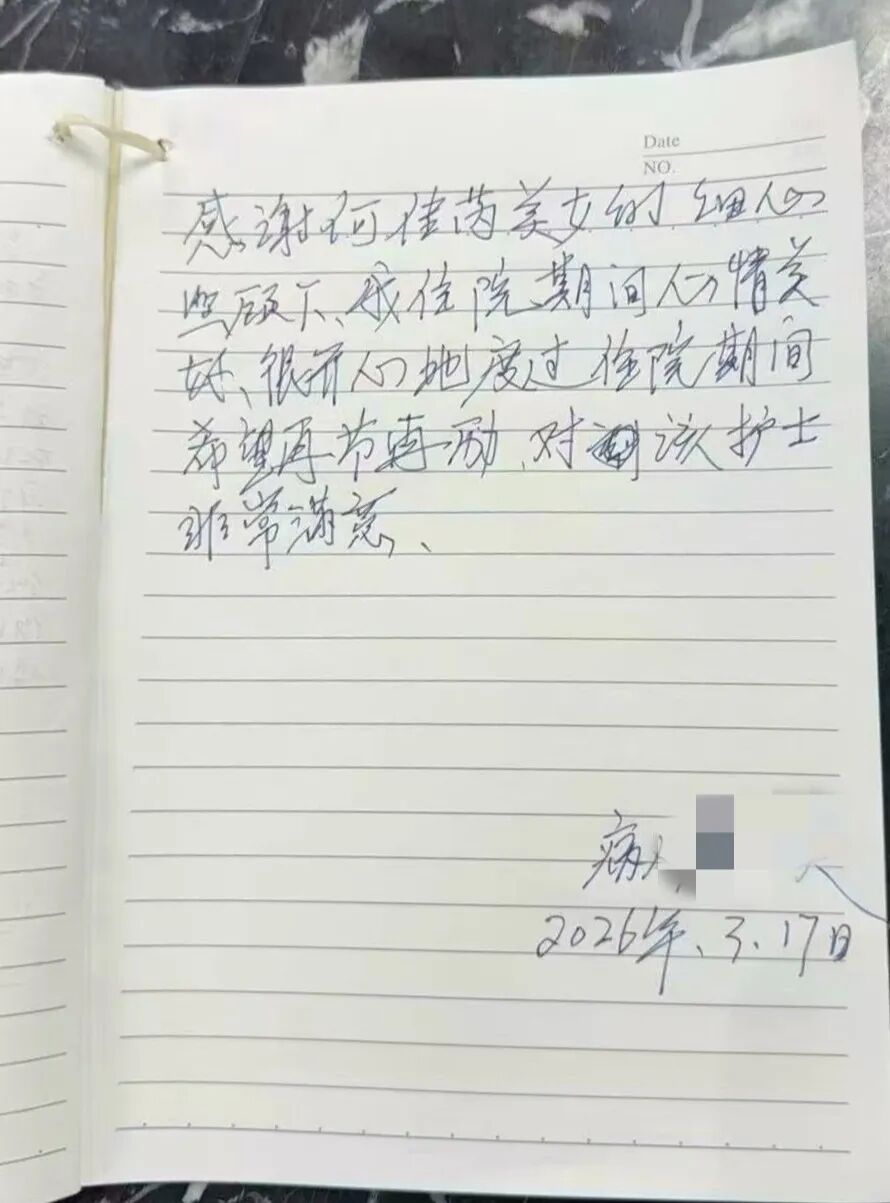 Date
NO.
感谢何佳芮美女的细心
照顾下、我住院、期间心情美
好、很开心地度过住院期间
希望再节再励、对该护士
非常满意、
病
2026年、3.17日